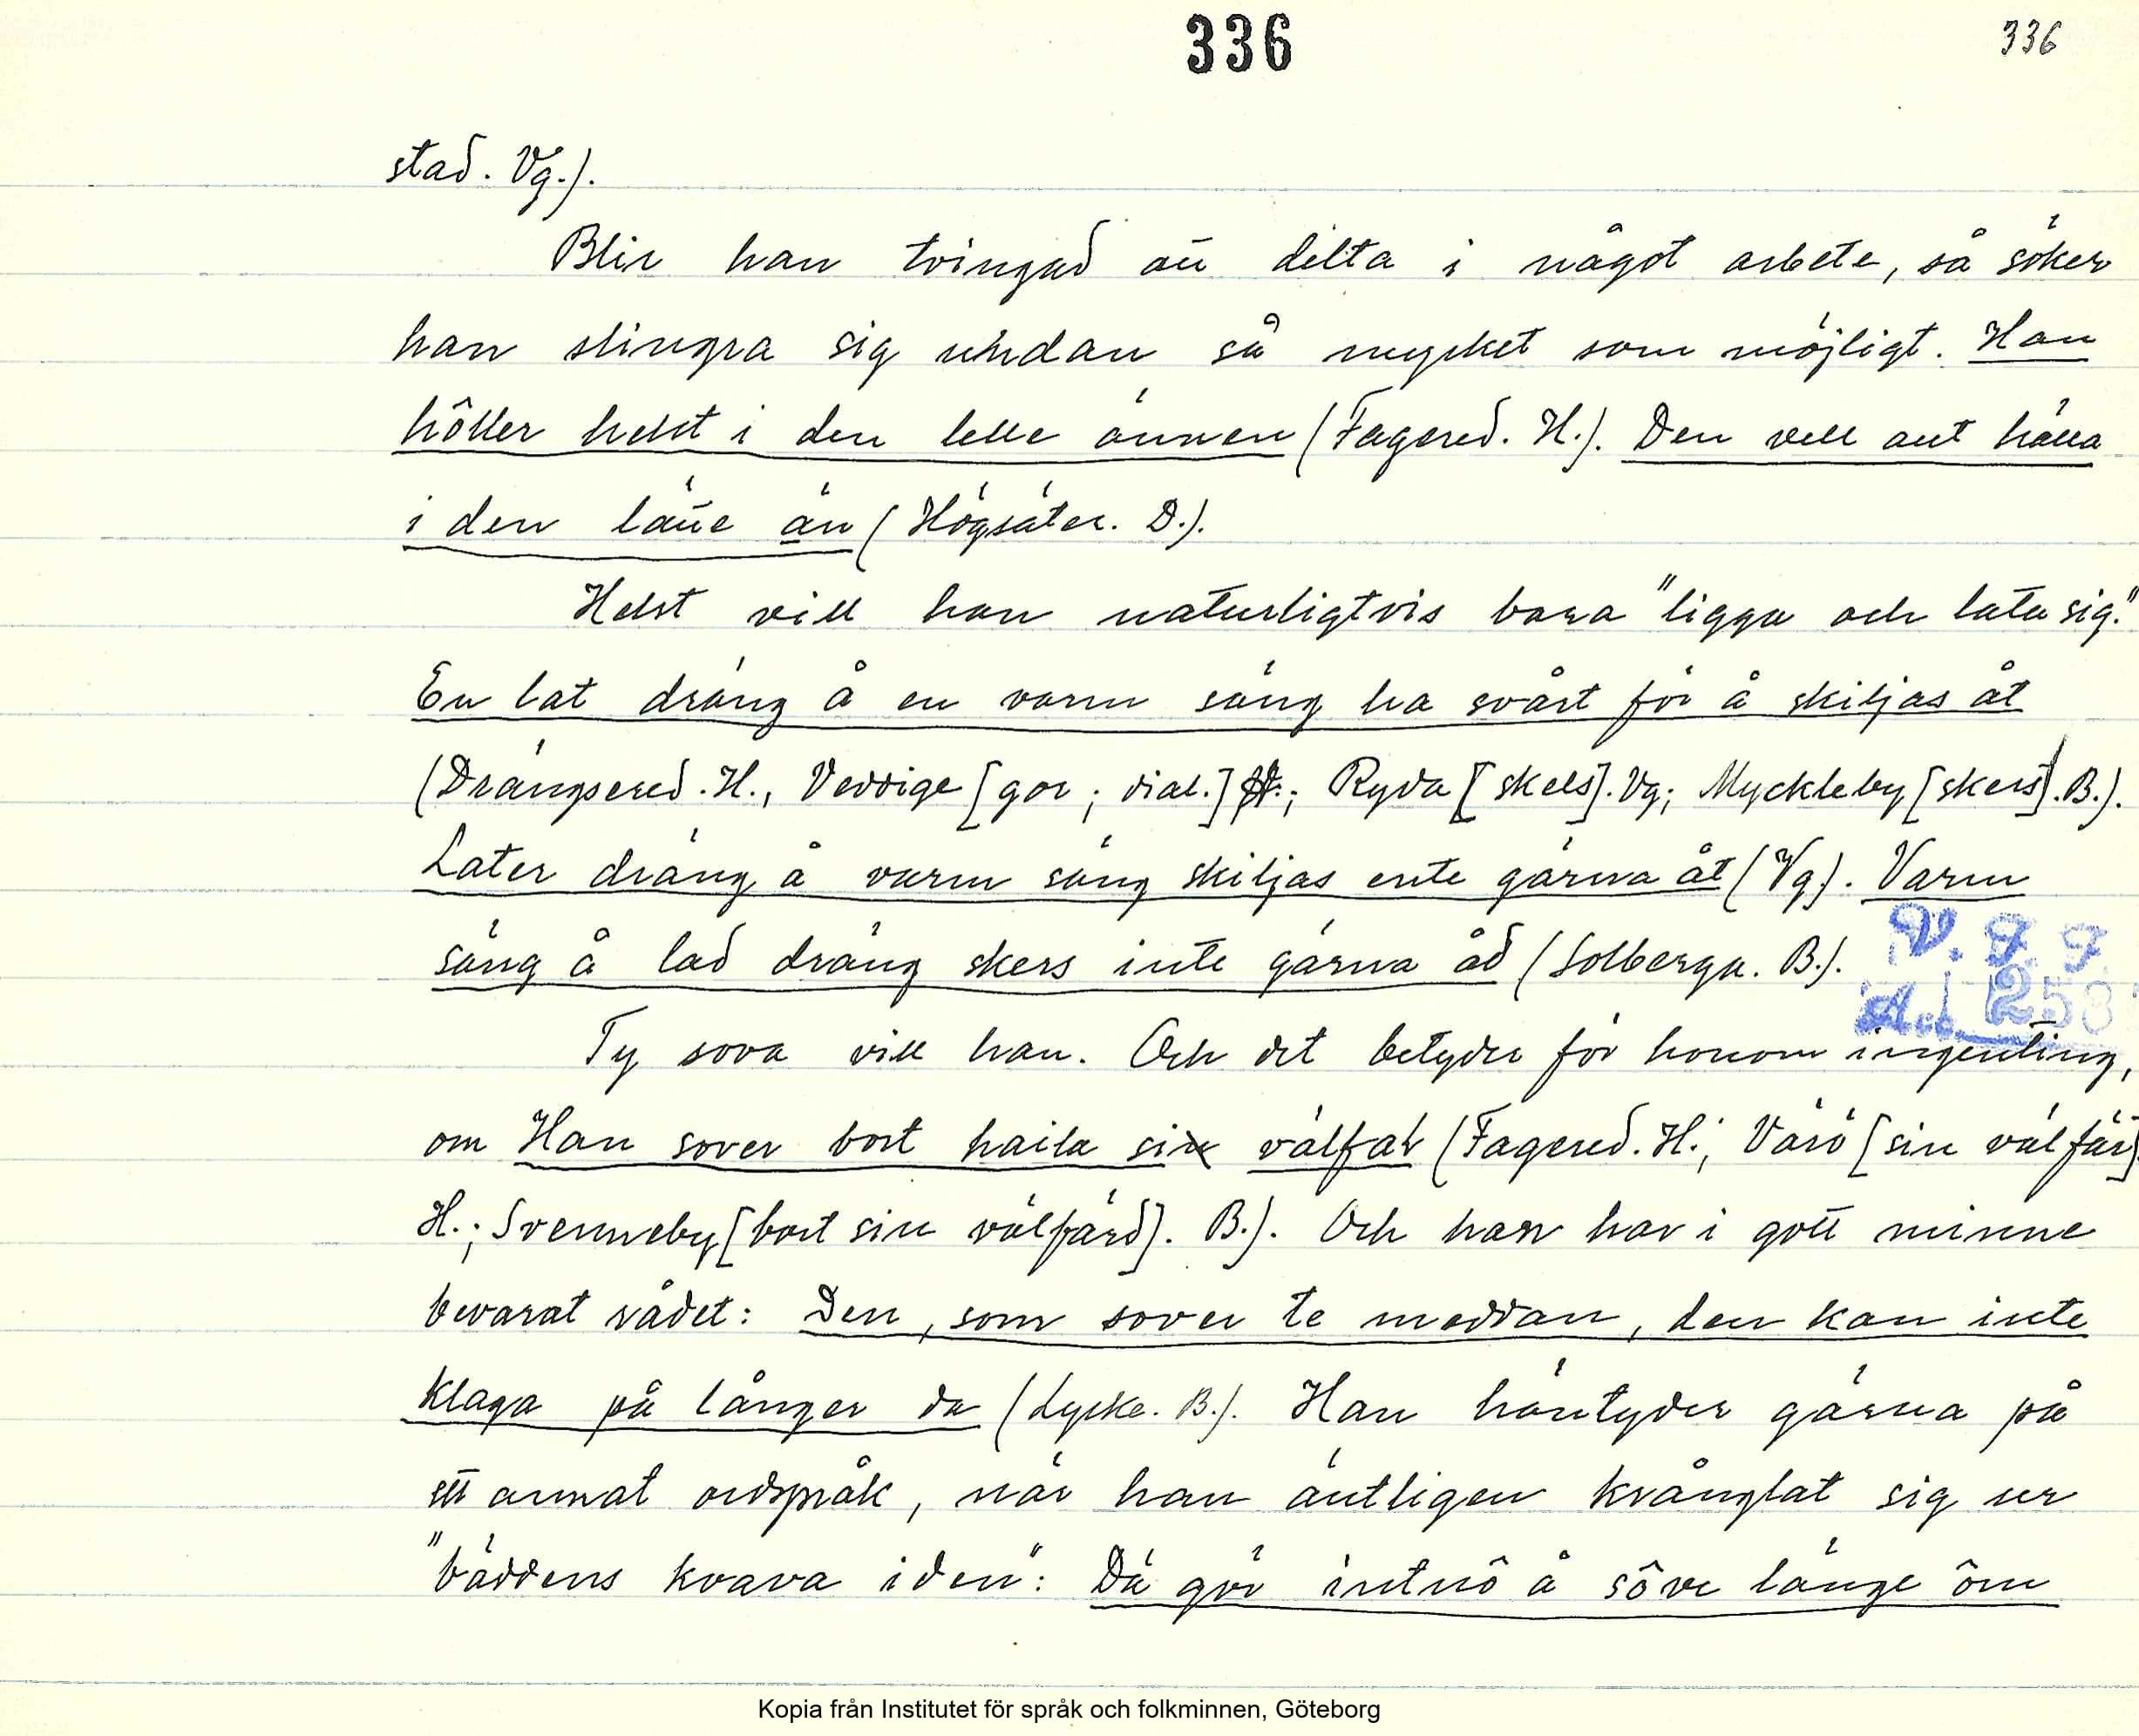 336 336
stad. Vg.).
Blir han tvingad att delta i något arbete, så söker
han slingra sig undan så mycket som möjligt. Han
hôller helst i den lelle ännen (Fagered. H.). Den vell ant hålla
i den lätte än (Högsäter. D.).
Helst vill han naturligtvis bara "ligga och lata sig."
En lat dräng å en varm säng ha svårt för å skiljas åt
(Drängsered. H., Veddige [gor ; dial.] H.; Ryda [skels]. Vg; Myckleby [skers]. B.).
Later dräng å varm säng skiljas ente gärna åt (Vg). Varm
säng å lad dräng skers inte gärna åd (Solberga. B.).
V. F. F.
Acc. 1258
Ty sova vill han. Och det betyder för honom ingenting,
om Han sover bort haila sin välfär (Fagered. H.; Värö [sin välfär].
H.; Svenneby [bort sin välfärd]. B.). Och han har i gott minne
bevarat rådet: Den, som sover te meddan, den kan inte
klaga på långer da (Lycke. B.). Han häntyder gärna på
ett annat ordspråk, när han äntligen krånglat sig ur
"bäddens kvava iden": Dä gör intnô å sôve länge ôm
Kopia från Institutet för språk och folkminnen, Göteborg